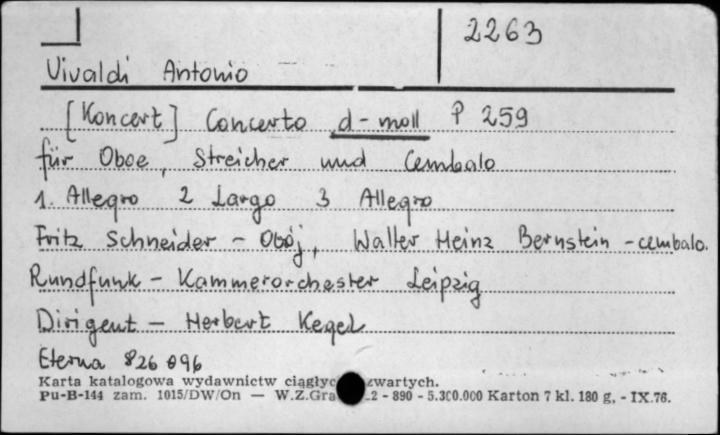 2263
Vivaldi Antonio
[Koncert] Concerto d-moll P 259
für Oboe, Streicher und Cembalo
1. Allegro 2 Largo 3 Allegro
Fritz Schneider - Obój, Walter Heinz Bernstein - cembalo.
Rundfunk - Kammerorchester Leipzig
Dirigent - Herbert Kegel
Eterna 826 096
Karta katalogowa wydawnictw ciągłyc zwartych.
Pu-B-144 zam. 1015/DW/On — W.Z.Gra 2 - 890 - 5.300.000 Karton 7 kl. 180 g. - IX.76.